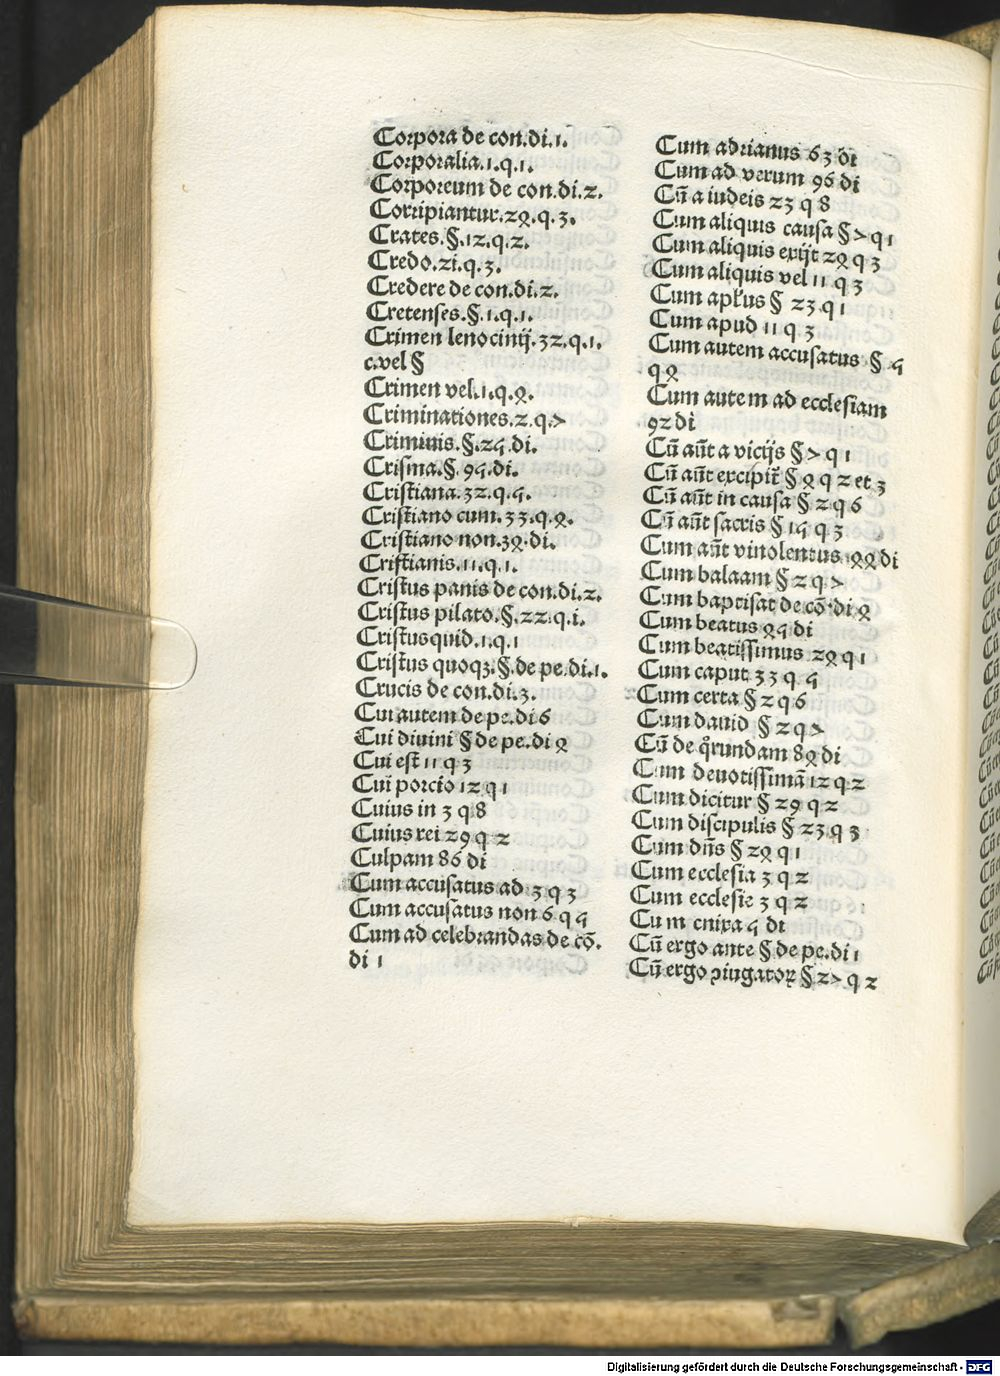 Corpora de con.di.1.
Corporalia.1.q.1.
Corporeum de con.di.2.
Corripiantur.24.q.3.
Crates.§.12.q.2.
Credo.21.q.3.
Credere de con.di.2.
Cretenses.§.1.q.1.
Crimen lenocinij.32.q.1.
c.vel §
Crimen vel.1.q.4.
Criminationes.2.q.7
Criminis.§.25.di.
Crisma.§.95.di.
Cristiana.32.q.5.
Cristiano cum.33.q.4.
Cristiano non.34.di.
Cristianis.11.q.1.
Cristus panis de con.di.2.
Cristus pilato.§.22.q.i.
Cristus quid.1.q.1
Cristus quoqꝫ.§.de pe.di.1.
Crucis de con.di.3.
Cui autem de pe.di 6
Cui diuini § de pe.di 4
Cui est 11 q 3
Cui porcio 12 q 1
Cuius in 3 q 8
Cuius rei 29 q 2
Culpam 86 di
Cum accusatus ad 3 q 3
Cum accusatus non 6 q 5
Cum ad celebrandas de cō.
di 1
Cum adrianus 63 di
Cum ad verum 96 di
Cū a iudeis 23 q 8
Cum aliquis causa § 7 q 1
Cum aliquis exijt 24 q 3
Cum aliquis vel 11 q 3
Cum apłus § 23 q 1
Cum apud 11 q 3
Cum autem accusatus § 5
q 4
Cum autem ad ecclesiam
92 di
Cū aūt a vicijs § 7 q 1
Cū aūt excipit̄ § 4 q 2 et 3
Cū aūt in causa § 2 q 6
Cū aūt sacris § 15 q 3
Cum aūt vinolentus 44 di
Cum balaam § 2 q 7
Cum baptisat de cō di 4
Cum beatus 45 di
Cum beatissimus 24 q 1
Cum caput 33 q 5
Cum certa § 2 q 6
Cum dauid § 2 q 7
Cū de q̊rundam 84 di
Cum deuotissimā 12 q 2
Cum dicitur § 29 q 2
Cum discipulis § 23 q 3
Cum dn̄s § 24 q 1
Cum ecclesia 3 q 2
Cum ecclesie 3 q 2
Cum enixa 5 di
Cū ergo ante § de pe.di 1
Cū ergo ꝯiugatoꝝ § 27 q 2
Digitalisierung gefördert durch die Deutsche Forschungsgemeinschaft - DFG